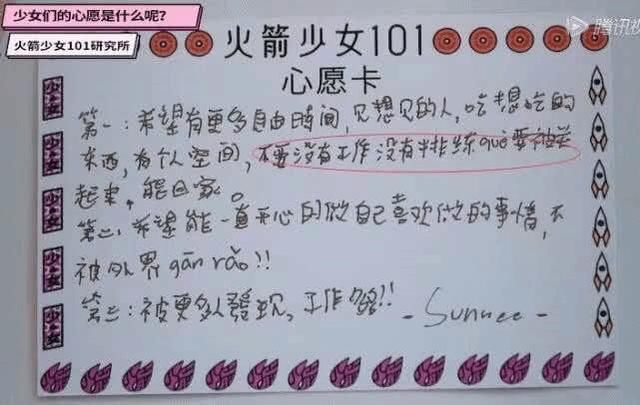 少女们的心愿是什么呢?
火箭少女101研究所
腾讯视
火箭少女101
心愿卡
第一:希望有更多自由时间,见想见的人,吃想吃的
东西,有个人空间,不要没有工作没有排练què要被关
起来,能回家。
第二:希望能一直开心的做自己喜欢做的事情,不
被外界gān rǎo!!
第三:被更多人發现,工作多多!!
- Sunnee -
少女
少女
少女
少女
少女